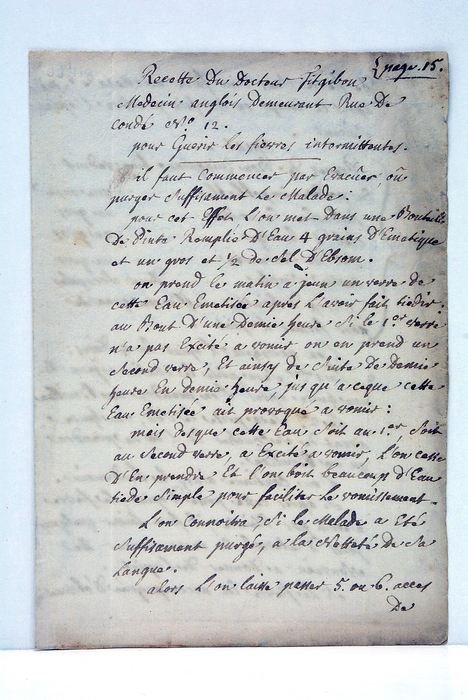 {page. 15.
Recette Du Docteur Fitgibon
Medecin anglois Demeurant Rue De
Condé No. 12.
pour Guerir Les fievres intermittentes.
il faut Commencer par Evacüer, oü
purger suffisament Le Malade:
pour cet Effet L'on met Dans une Bouteille
De Pinte Remplie D'Eau 4 grains D'Emetique
et un gros et 1/2 de sel D'Ebsom.
on prend Le matin a jeun un verre de
cette Eau Emetisée après L'avoir fait tiedir.
au Bout D'une Demie heure si le 1.er verre
n'a pas Excité a vomir on en prend un
second verre, Et ainsy de suite De Demie
heure En demie heure, jusqu'a ceque cette
Eau Emetisée ait provoqué a vomir:
mais desque cette Eau soit au 1.er soit
au second verre, a Excité a vomir, L'on cesse
D'En prendre Et l'on boit beaucoup d'Eau
tiede simple pour faciliter Le vomissement.
L'on Connoitra, si Le Malade a Eté
suffisament purgé, a la Netteté de sa
Langue.
alors L'on laisse passer 5. ou 6. acces
De